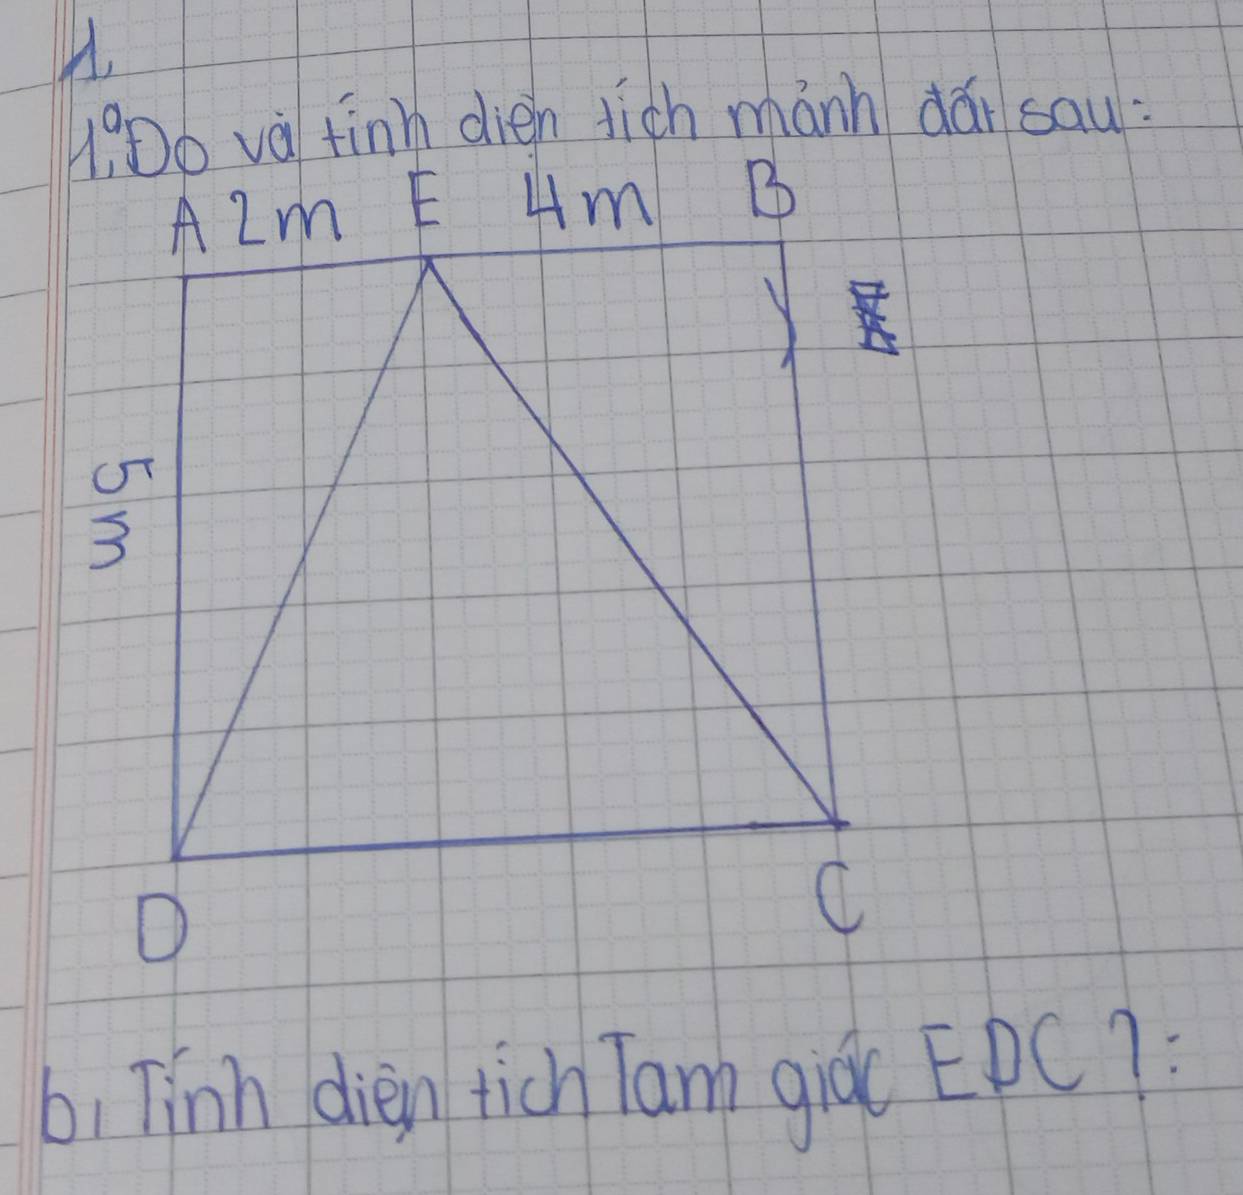 1.
1.a Đo và tính diện tích mảnh đất sau:
A 2m E 4m B
5m
D C
b. Tính diện tích Tam giác EDC?: